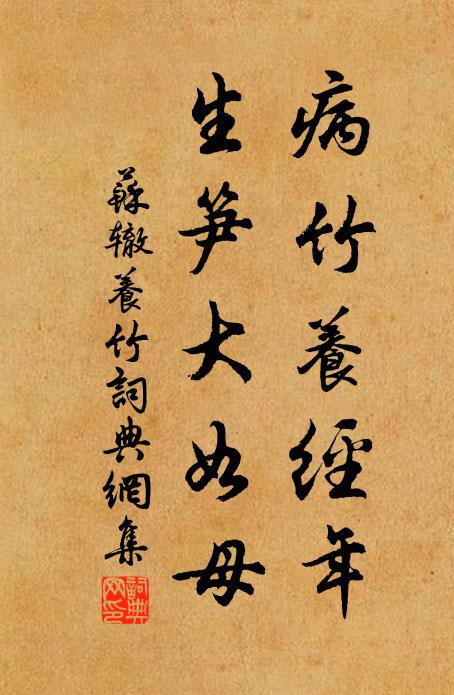 病竹養經年
生笋大如母
蘇辙養竹詞典網集
詞典网印